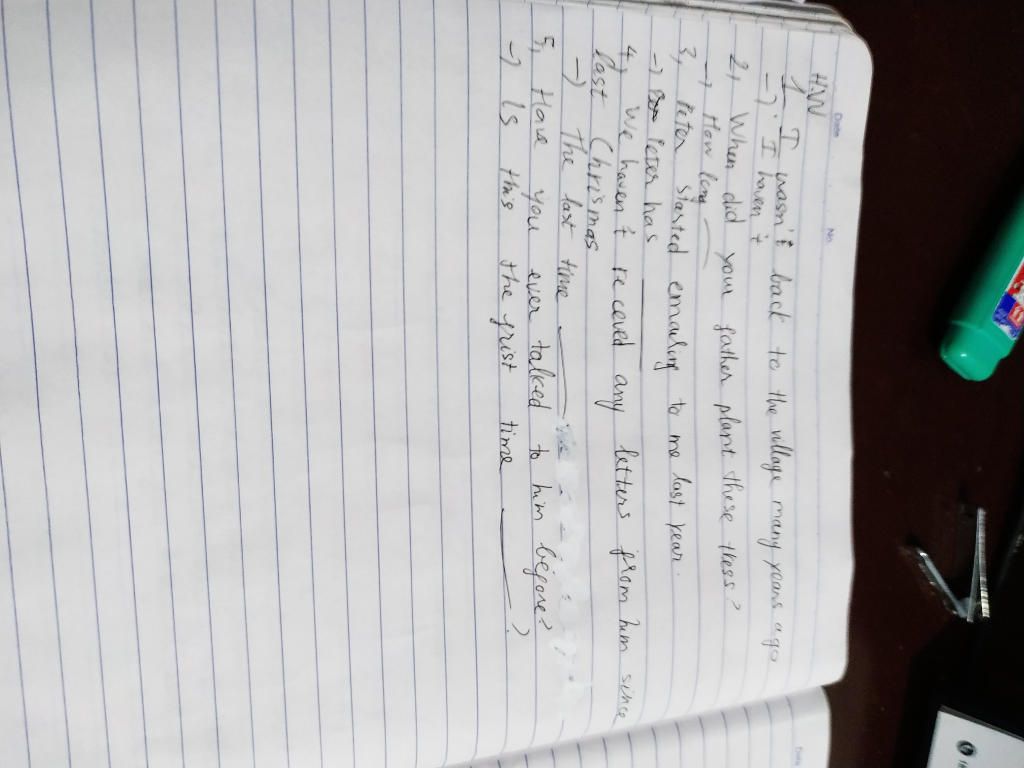 Date
No.
H.W
1, I wasn't back to the village many years ago
-> I haven't
2, When did your father plant these tless?
-> How long
3, Peter started emailing to me last year.
-> Peter has
4, We haven't receved any letters from him since
last Chrismas
-> The last time
5, Have you ever talked to him before?
-> Is this the frist time ?
Date